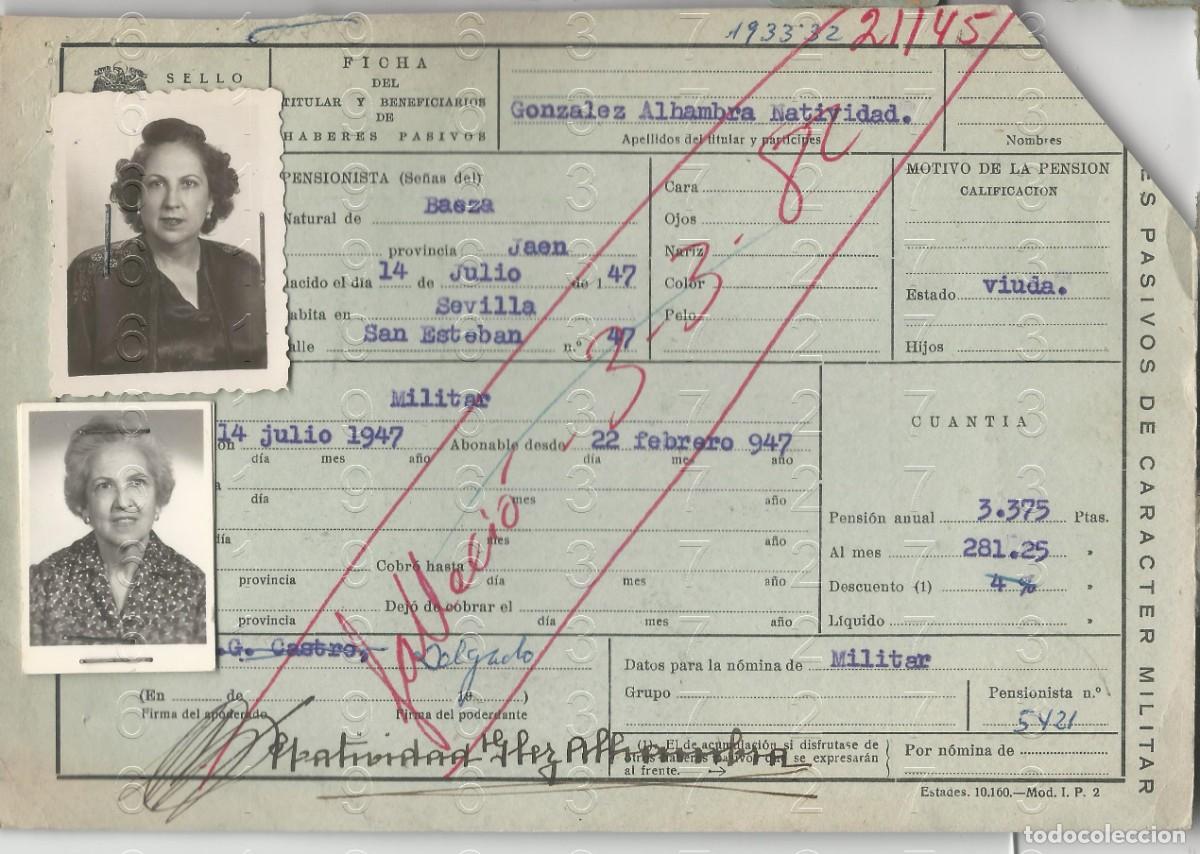 1933·32 21145
SELLO
FICHA
DEL
TITULAR Y BENEFICIARIOS
DE
HABERES PASIVOS
Gonzalez Alhambra Natividad.
Apellidos del titular y partícipes
Nombres
PENSIONISTA (Señas del)
Natural de Baeza
provincia Jaen
nacido el día 14 de Julio de 1 47
habita en Sevilla
calle San Esteban n.º 47
Cara
Ojos
Nariz
Color
Pelo
MOTIVO DE LA PENSION
CALIFICACION
Estado viuda.
Hijos
Falleció 3-3-82
Militar
14 julio 1947 Abonable desde 22 febrero 947
día mes año día mes año
día mes año
día mes año
provincia Cobró hasta día mes año
Dejó de cobrar el
provincia día mes año
CUANTIA
Pensión anual 3.375 Ptas.
Al mes 281.25 »
Descuento (1) 4 % »
Líquido »
G. Castro, Delgado
(En de 19 )
Firma del apoderado Firma del poderdante
Natividad Glez Alhambra
Datos para la nómina de Militar
Grupo
Pensionista n.º
5421
(1) El de acumulación si disfrutase de
otros haberes pasivos que se expresarán
al frente.
Por nómina de
Estades. 10.160.—Mod. I. P. 2
ES PASIVOS DE CARACTER MILITAR
todocoleccion